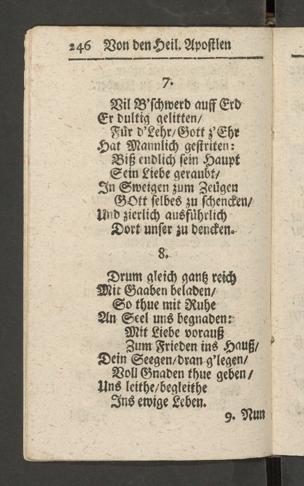 246 Von den Heil. Apostlen
7.
Vil B'schwerd auff Erd
Er dultig gelitten/
Für d'Lehr/Gott z'Ehr
Hat Mannlich gestriten:
Biß endlich sein Haupt
Sein Liebe geraubt/
In Sweigen zum Zeügen
GOtt selbes zu schencken/
Und zierlich ausführlich
Dort unser zu dencken.
8.
Drum gleich gantz reich
Mit Gaaben beladen/
So thue mit Ruhe
An Seel uns begnaden:
Mit Liebe vorauß
Zum Frieden ins Hauß/
Dein Seegen/dran g'legen/
Voll Gnaden thue geben/
Uns leithe/begleithe
Ins ewige Leben.
9. Nun